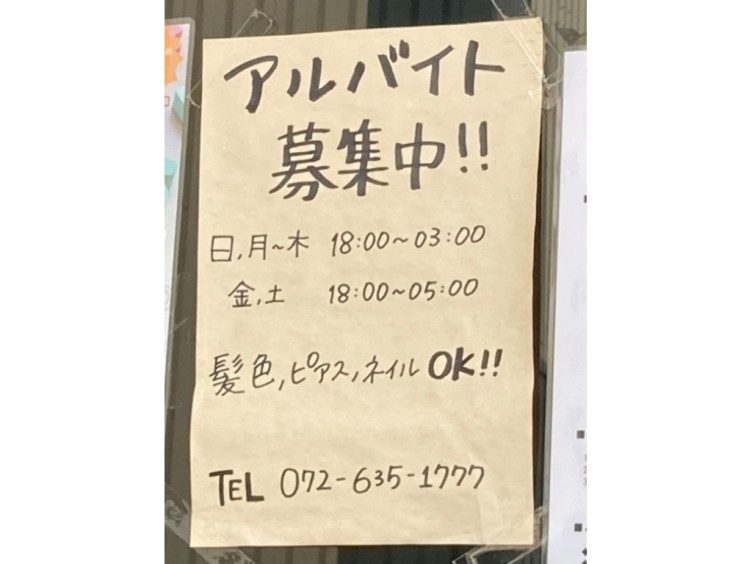 アルバイト
募集中!!
日,月~木 18:00~03:00
金,土 18:00~05:00
髪色,ピアス,ネイル OK!!
TEL 072-635-1777